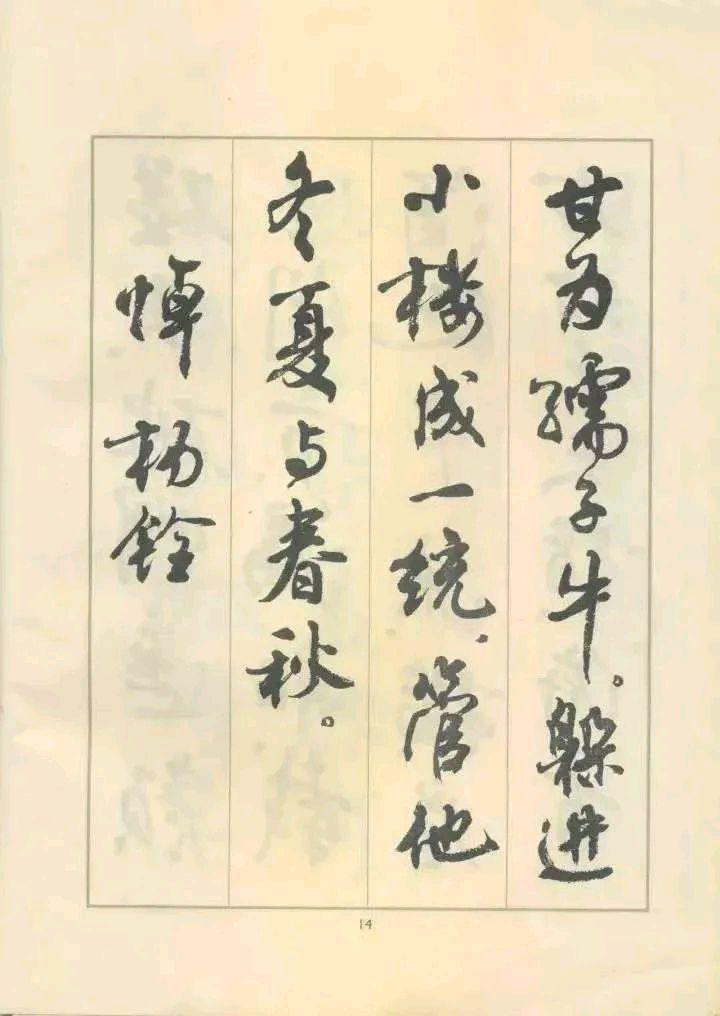 甘为孺子牛。躲进
小楼成一统，管他
冬夏与春秋。
悼杨铨
14